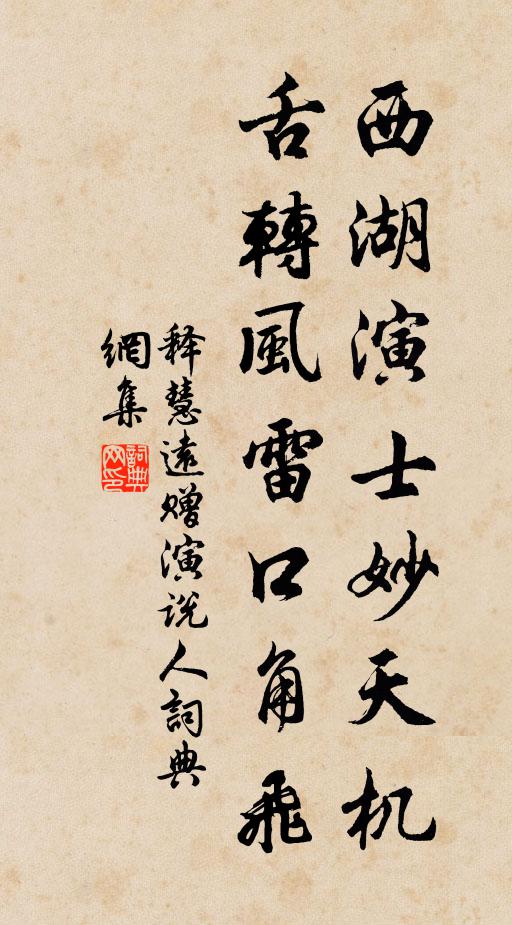 西湖演士妙天机
舌轉風雷口角飛
释慧遠赠演说人詞典
網集
詞典
网印